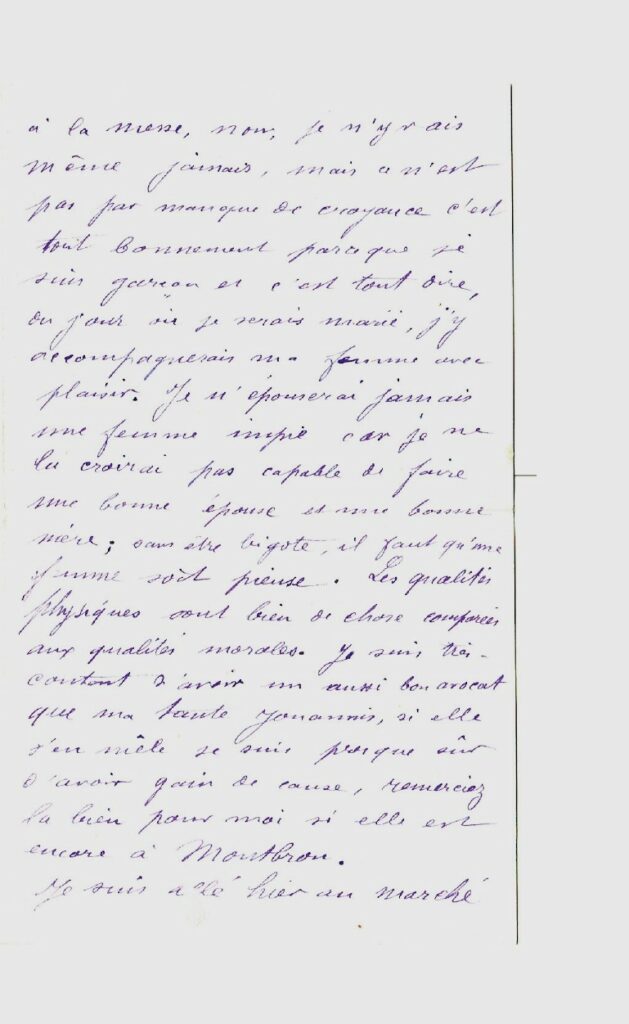 à la messe, non, je n'y vais
même jamais, mais ce n'est
pas par manque de croyance c'est
tout bonnement parceque je
suis garcon et c'est tout dire,
du jour où je serais marié, j'y
accompagnerais ma femme avec
plaisir. Je n'épouserai jamais
une femme impie car je ne
la croirai pas capable de faire
une bonne épouse et une bonne
mère; sans être bigote, il faut qu'une
femme soit pieuse. Les qualités
physiques sont bien de chose comparées
aux qualités morales. Je suis très-
content d'avoir un aussi bon avocat
que ma tante Jouannis, si elle
s'en mêle je suis presque sûr
d'avoir gain de cause, remerciez
la bien pour moi si elle est
encore à Montbron.
Je suis allé hier au marché